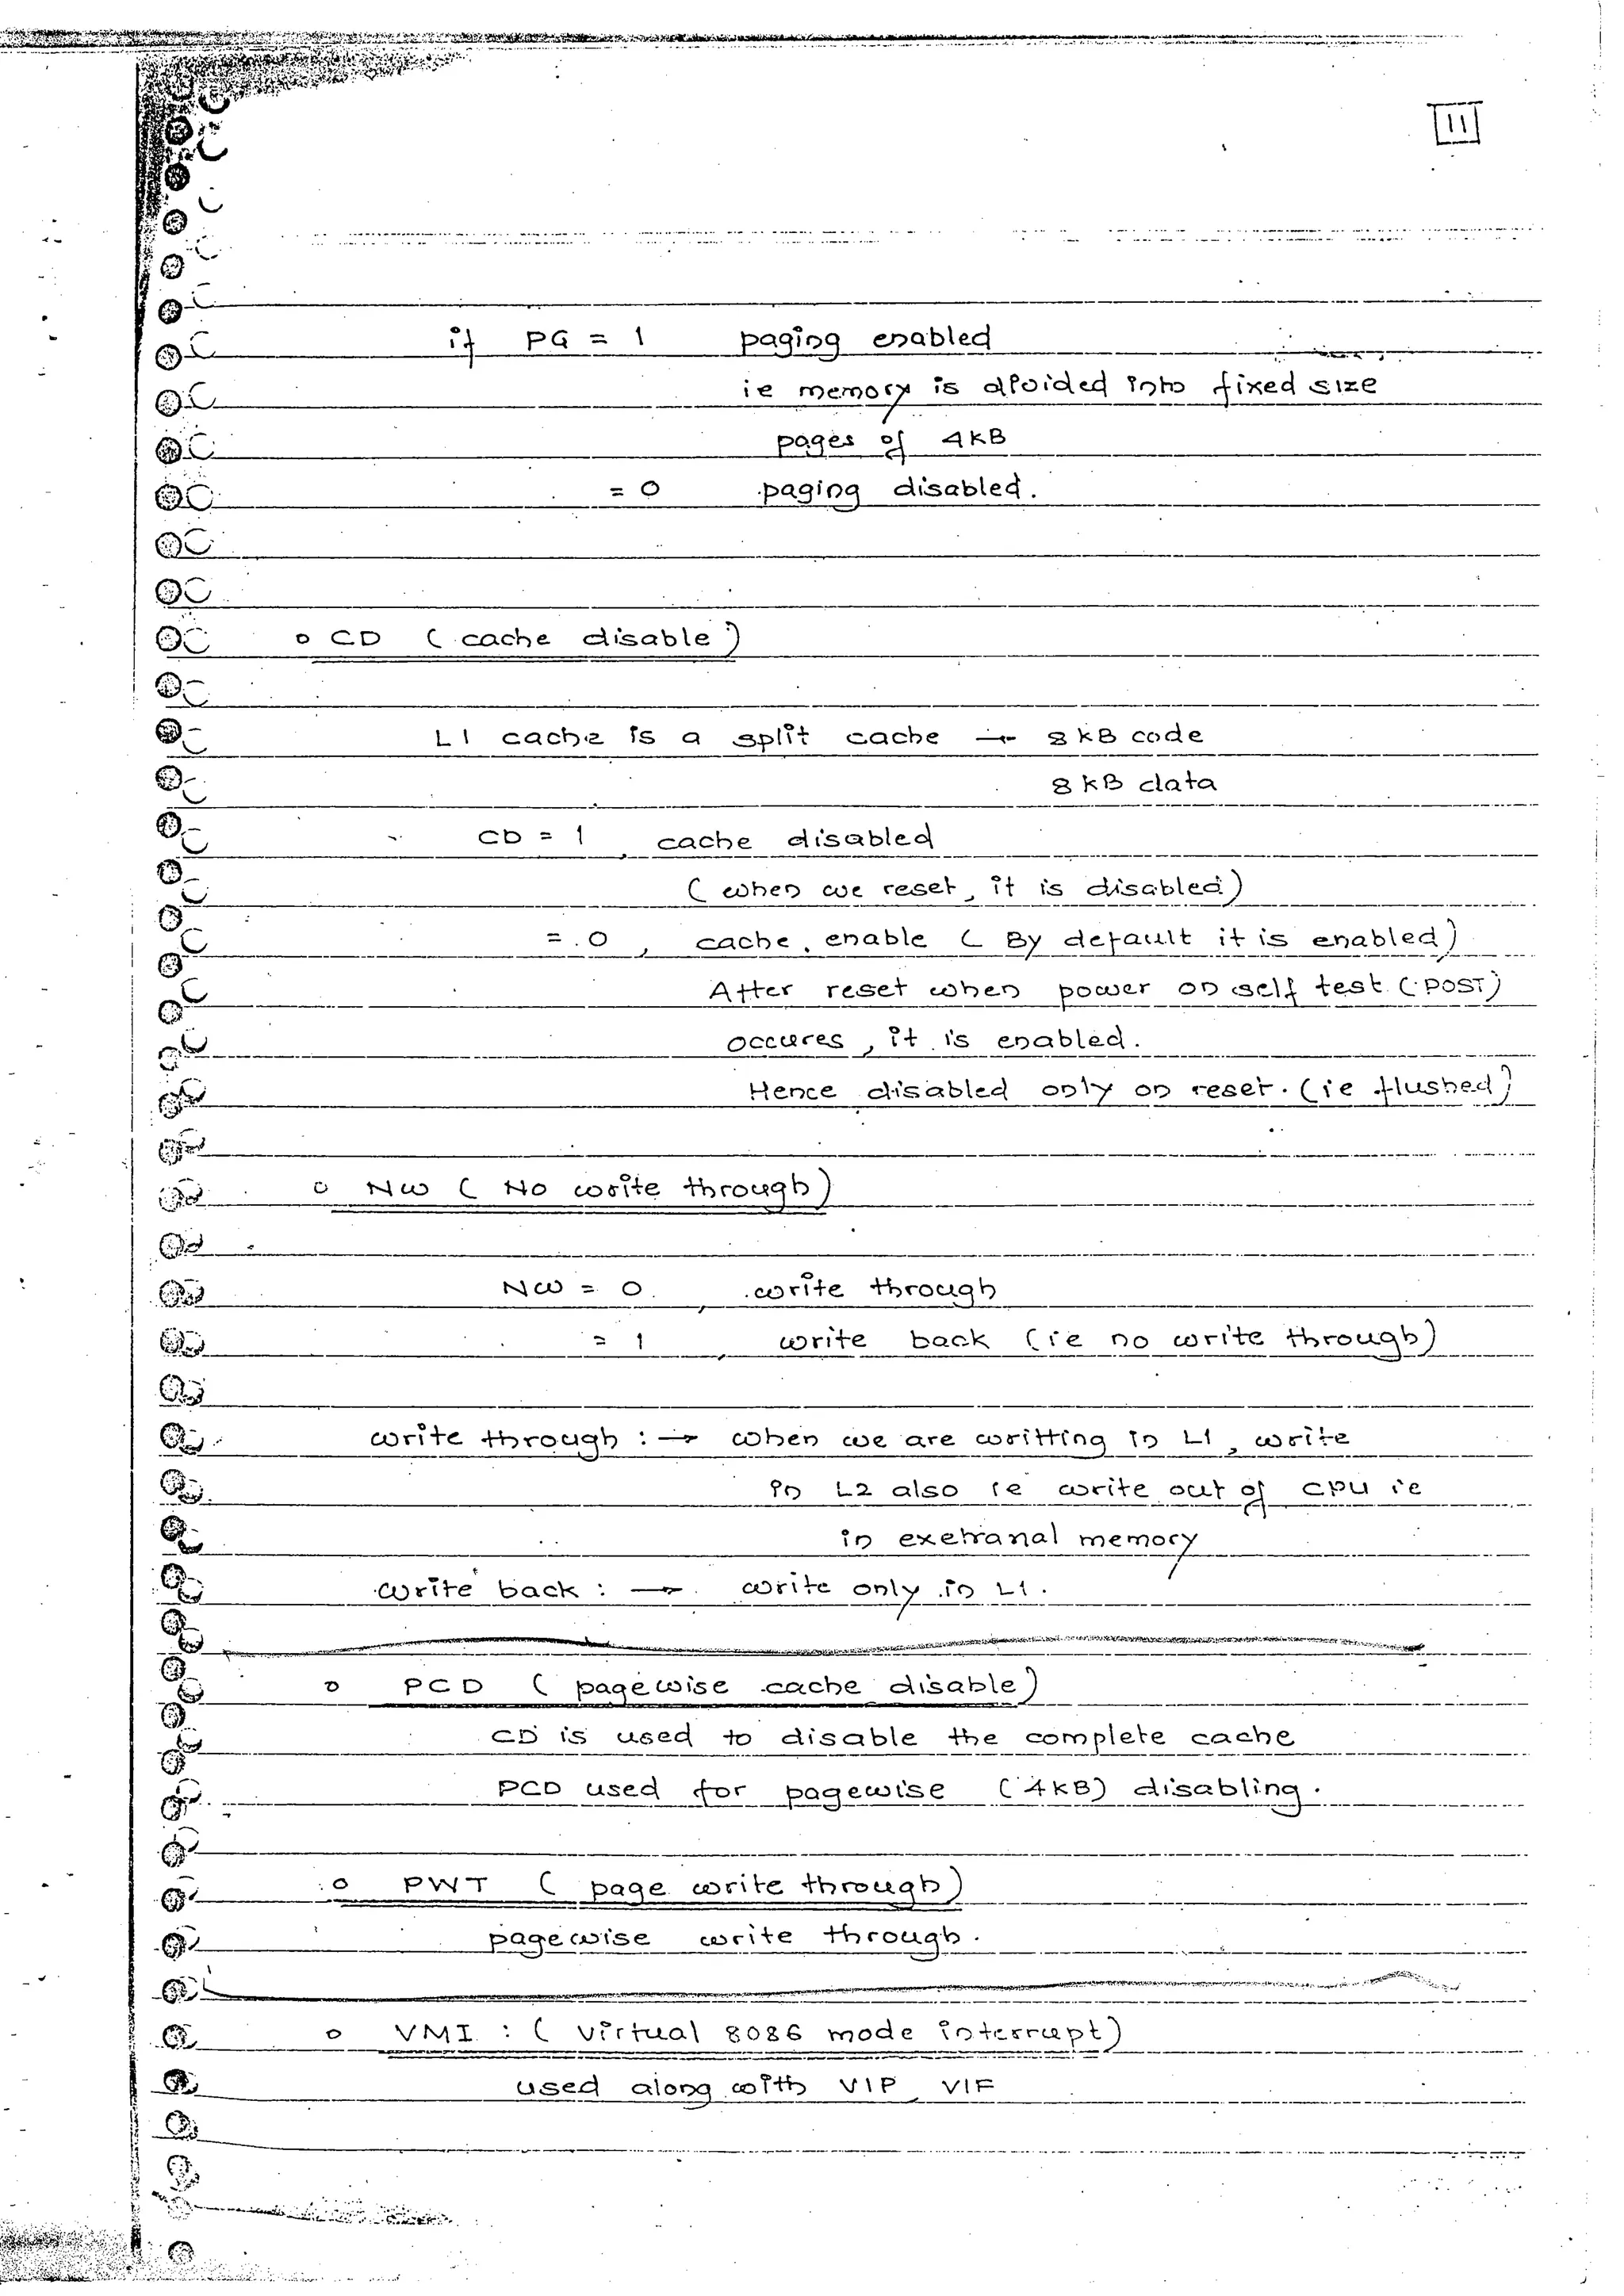 11
if PG = 1 paging enabled
ie memory is divided into fixed size
pages of 4KB
= 0 paging disabled.
o CD ( cache disable )
L1 cache is a split cache → 8 KB code
8 KB data
CD = 1 , cache disabled
( when we reset, it is disabled )
= 0 , cache enable ( By default it is enabled )
After reset when power on self test ( POST )
occures , it is enabled.
Hence disabled only on reset. ( ie flushed )
o NW ( No write through )
NW = 0 , write through
= 1 , write back ( ie no write through )
write through : → when we are writting in L1 , write
in L2 also ie write out of CPU ie
in exetranal memory
write back : → write only in L1 .
o PCD ( pagewise cache disable )
CD is used to disable the complete cache
PCD used for pagewise ( 4KB ) disabling .
o PWT ( page write through )
pagewise write through .
o VMI : ( Virtual 8086 mode interrupt )
used along with VIP, VIF